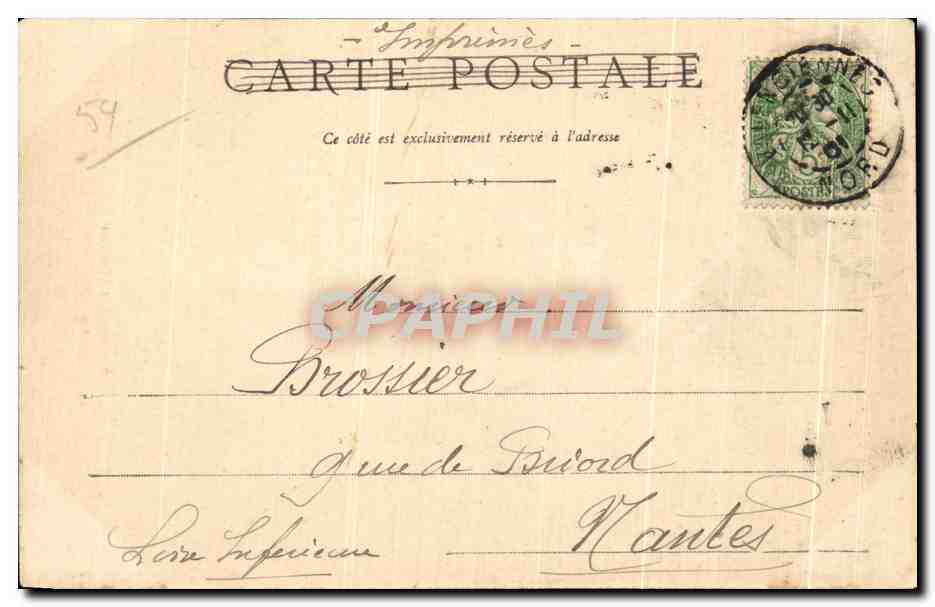 - Imprimés -
CARTE POSTALE
59
Ce côté est exclusivement réservé à l'adresse
VALENCIENNES
NORD
POSTES
CPAPHIL
Monsieur
Brossier
9 rue de Briord
Nantes
Loire Inférieure